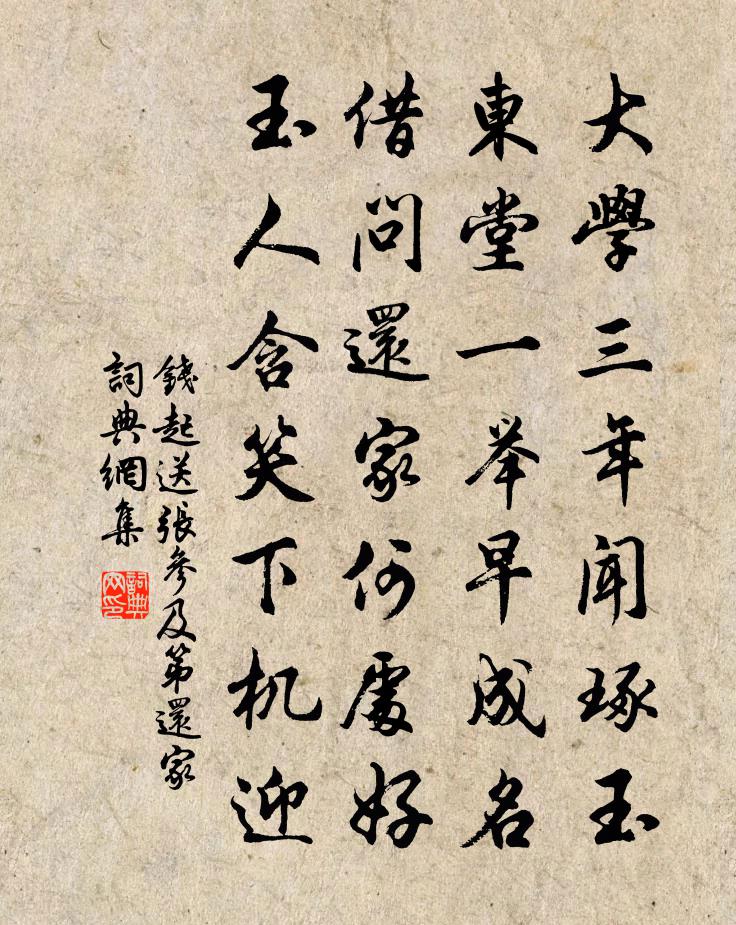 大學三年聞琢玉
東堂一举早成名
借問還家何處好
玉人含笑下机迎
錢起送張參及第還家
詞典網集
詞典网印